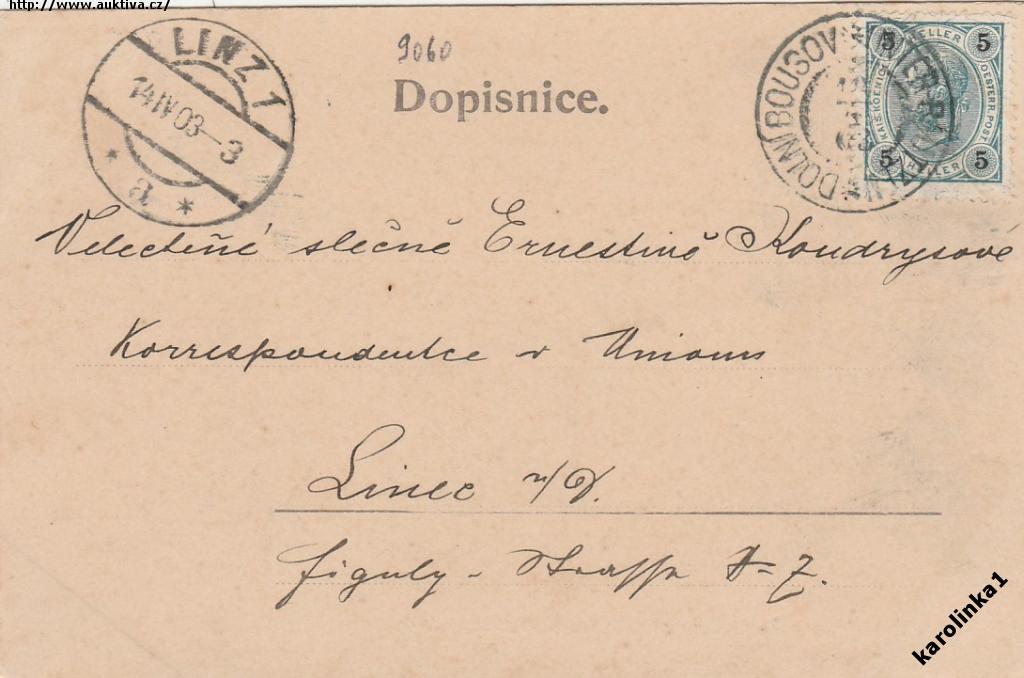 http://www.auktiva.cz/
LINZ 1
14 IV 03-3
a
9060
Dopisnice.
DOLNÍ BOUSOV
5 HELLER 5
KAIS. KOENIGL. OESTERR. POST
5 HELLER 5
Velectěné slečně Ernestině Koudrysové
Korrespondentce v Unionu
Linec n/D.
Figuly-Strasse
karolinka1